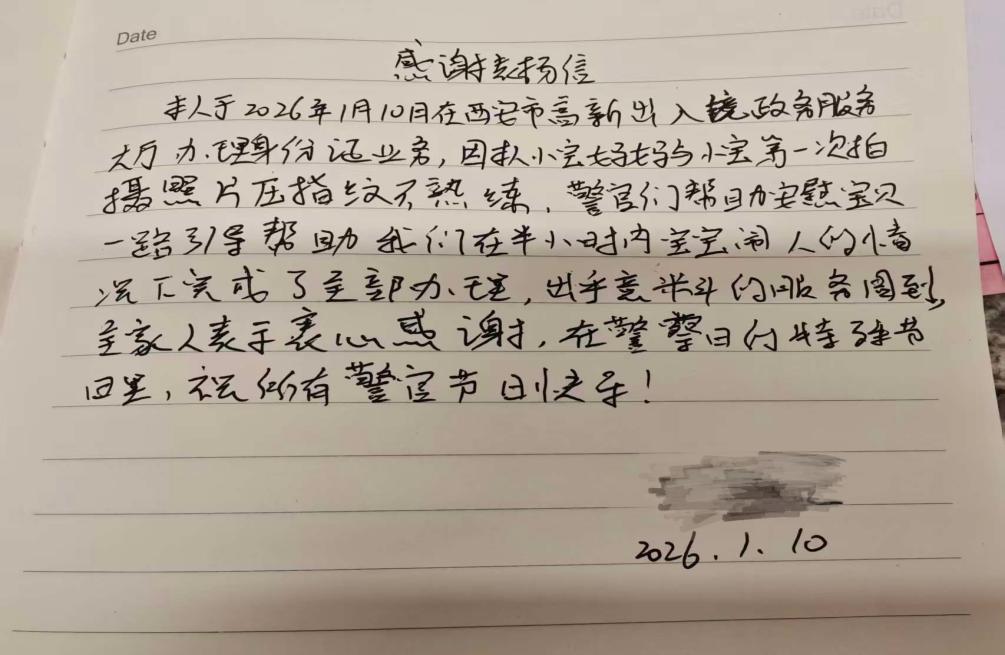 Date
感谢表扬信
本人于2026年1月10日在西安市高新出入镜政务服务
大厅办理身份证业务,因本人小宝妈妈与小宝第一次拍
摄照片压指纹不熟练,警官们帮助安慰宝贝
一路引导帮助我们在半小时内宝宝闹人的情
况下完成了全部办理,出乎意料的服务周到,
全家人表于衷心感谢,在警警日的特殊节
日里,祝所有警官节日快乐!
2026.1.10